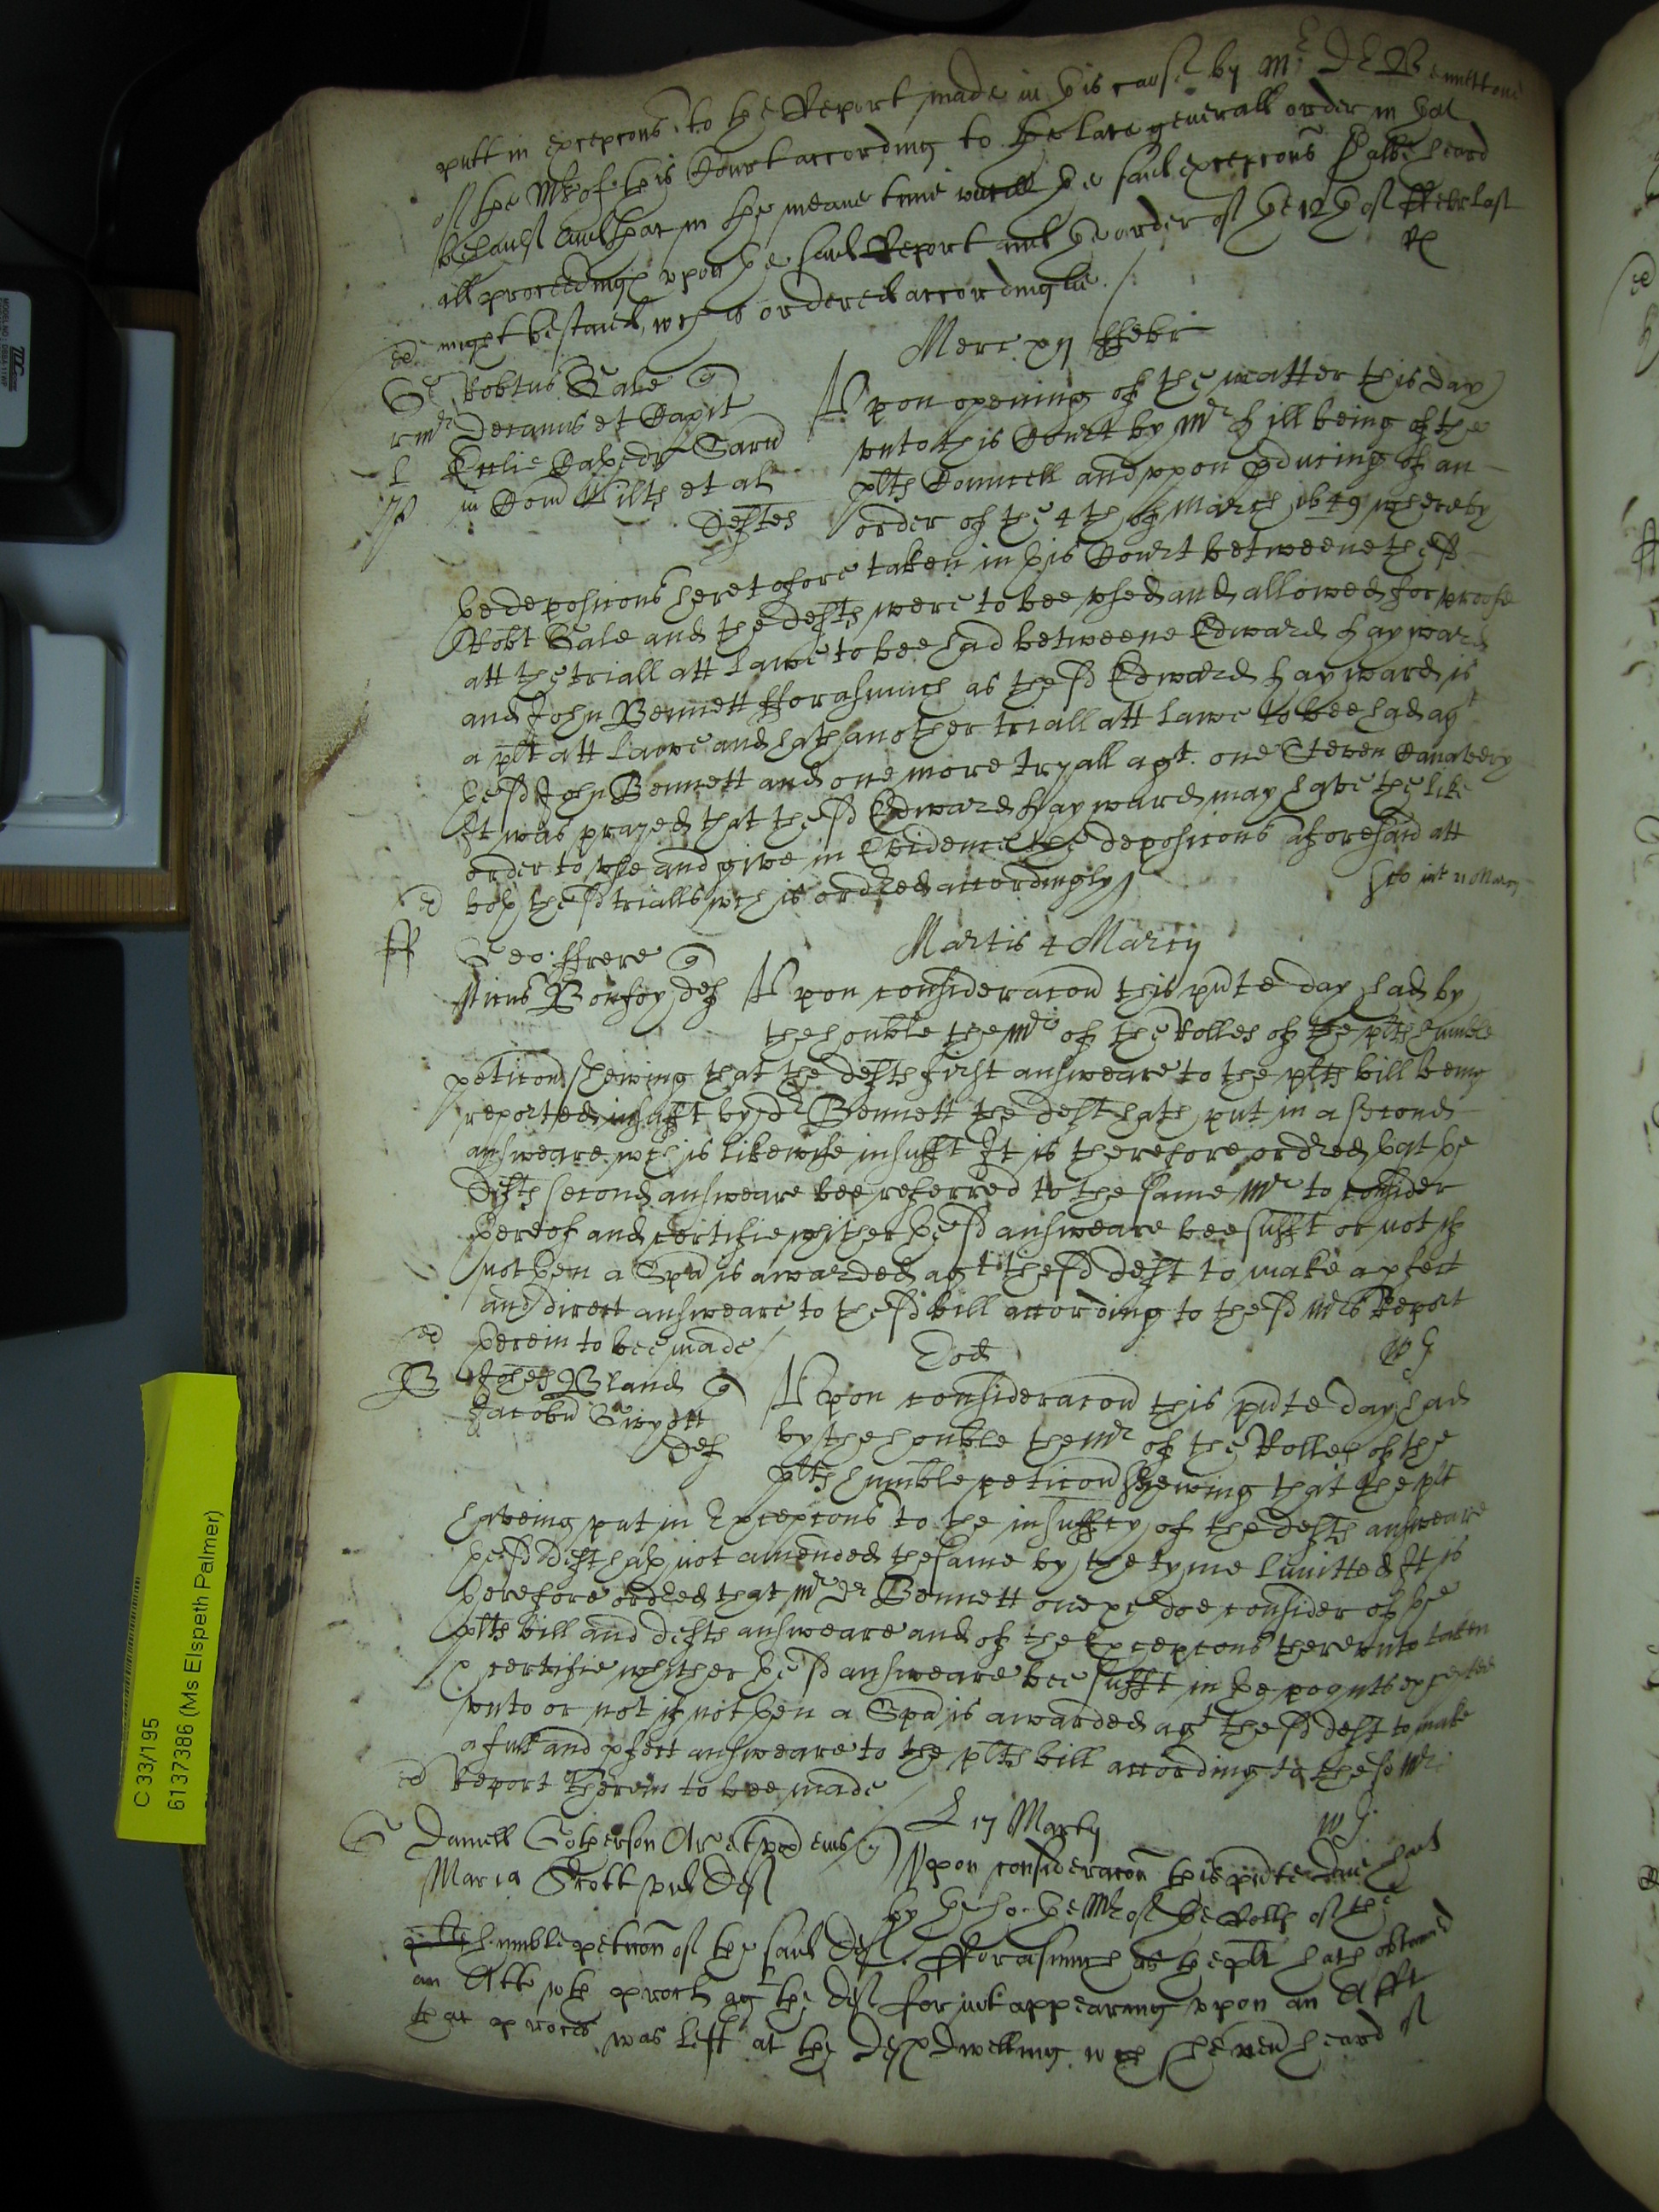 putt in excepcons to the Report made in this cause by Mr Dr Bennett one
of the Mrs of this Court according to the late generall order in that
behaulf and that in the meane time untill the said excepcons shalbe heard
all proceedings upon the said Report and the order of the 12th of ffebr last
might be staied, wch is ordered accordinglie
Merc xij ffebr
Robtus Gale q
Decanus et Capit
Ecclie Cathedr Sarū
in Com Wilts et al
Deftes
Upon opening of the matter this day
unto this Court by Mr Hill being of the
plts Councell and upon pducing of an
order of the 4th of March 1649 whereby
the deposicons heretofore taken in this Court betweene the sd
Robt Gale and the defts were to bee used and allowed for proofe
att the triall att Lawe to bee had betweene Edward Hayward
and John Bennett fforasmuch as the sd Edward Hayward is
a plt att Lawe and hath another triall att Lawe to bee had agt
the sd John Bennett and one more tryall agt. one Steven
It was prayed that the sd Edward Hayward may have the like
order to use and give in Evidence the deposicons aforesaid att
both the sd trialls wch is ordred accordingly
Martis 4 Marcij
Geo: ffrere q
Nicus Bonfoy def
Upon consideracon this pnte day had by
the honble the Mr of the Rolles of the plts humble
peticon shewing that the defts first answeare to the plts bill being
reported insufft by Dr Bennett the deft hath put in a second
answeare wch is likewise insufft It is therefore ordred that the
defts second answeare bee referred to the same Mr to consider
thereof and certifie whither the sd answeare bee sufft or not if
not then a Spa is awarded agt the sd deft to make a pfect
and direct answeare to the sd bill according to the sd Mrs Report
therein to bee made
Eod
Johes Bland q
Jacobū Gwyott
def
Upon consideracon this pnte day had
by the honble the Mr of the Rolles of the
plts humble peticon shewing that the plt
haveing put in Excepcons to the insuffcy of the defts answeare
the sd deft hath not amended the same by the tyme limitted It is
therefore ordred that Mr Dr Bennett one &c doe consider of the
plts bill and defts answeare and of the Excepcons thereunto taken
& certifie whither the sd answeare bee sufft in the poynts excepted
unto or not if not then a Spa is awarded agt the sd deft to make
a full and pfect answeare to the plts bill according to the sd Mrs
Report therein to bee made
L 17 Marcij
Daniell Gotherson Ar et
Maria Scott vid Def
Upon consideracon this pnte daie had
by the ho: the Mr of the Rolls of the
humble peticon of the said Def. fforasmuch as the plt hath obteined
an Att wth proclt agt the Def for not appearing upon an Afft
that proces was left at the Defts dwelling wch shee never heard of
C 33/195
6137386 (Ms Elspeth Palmer)